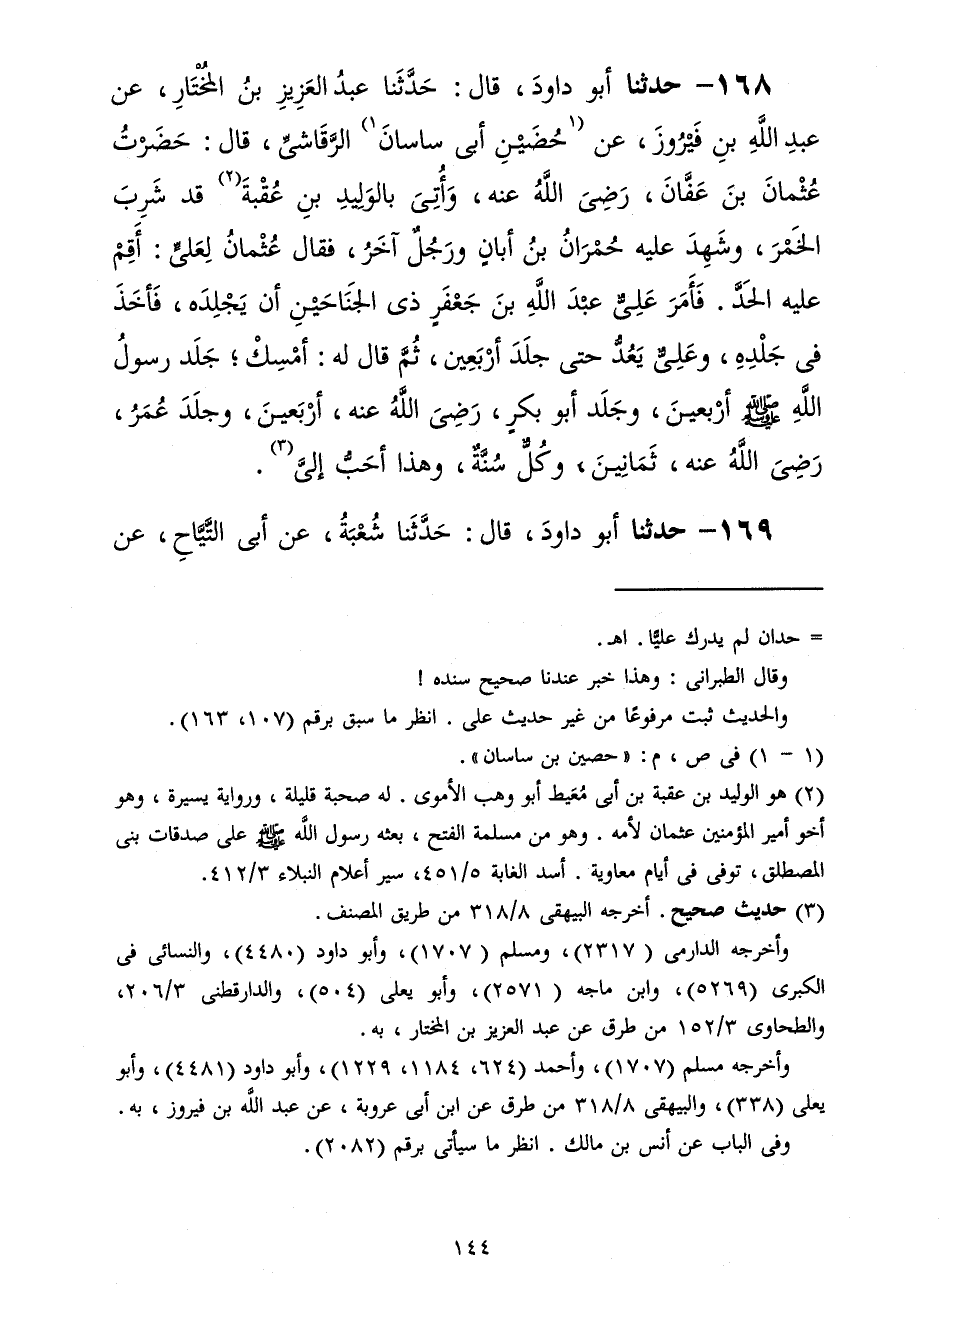 ١٦٨- حدثنا أبو داودَ ، قال : حَدَّثَنا عبدُ العَزِيزِ بنُ المُخْتَارِ ، عن
عبدِ اللَّهِ بنِ فَيْرُوزَ ، عن (١حُضَيْنِ أبى ساسانَ١) الرَّقاشىِّ ، قال : حَضَرْتُ
عُثْمانَ بنَ عَفَّانَ ، رَضِىَ اللَّهُ عنه ، وَأُتِىَ بالوَلِيدِ بنِ عُقْبةَ(٢) قد شَرِبَ
الخَمْرَ ، وشَهِدَ عليه حُمْرَانُ بنُ أبانٍ ورَجُلٌ آخَرُ ، فقال عُثْمانُ لِعَلىٍّ : أَقِمْ
عليه الحَدَّ . فَأَمَرَ عَلِىٌّ عبْدَ اللَّهِ بنَ جَعْفَرٍ ذى الجَناحَيْنِ أن يَجْلِدَه ، فَأخَذَ
فى جَلْدِهِ ، وعَلِىٌّ يَعُدُّ حتى جلَدَ أرْبَعِين ، ثُمَّ قال له : أمْسِكْ ؛ جَلَد رسولُ
اللَّهِ ﷺ أرْبعينَ ، وجَلَد أبو بكرٍ ، رَضِىَ اللَّهُ عنه ، أرْبَعينَ ، وجلَدَ عُمَرُ ،
رَضِىَ اللَّهُ عنه ، ثَمَانِينَ ، وكُلٌّ سُنَّةٌ ، وهذا أحَبُّ إلىَّ(٣) .
١٦٩- حدثنا أبو داودَ ، قال : حَدَّثَنا شُعْبَةُ ، عن أبى التَّيَّاحِ ، عن
= حدان لم يدرك عليًّا . اهـ .
وقال الطبرانى : وهذا خبر عندنا صحيح سنده !
والحديث ثبت مرفوعًا من غير حديث على . انظر ما سبق برقم (١٠٧، ١٦٣) .
(١ - ١) فى ص ، م : « حصين بن ساسان » .
(٢) هو الوليد بن عقبة بن أبى مُعَيط أبو وهب الأموى . له صحبة قليلة ، ورواية يسيرة ، وهو
أخو أمير المؤمنين عثمان لأمه . وهو من مسلمة الفتح ، بعثه رسول اللَّه ﷺ على صدقات بنى
المصطلق ، توفى فى أيام معاوية . أسد الغابة ٤٥١/٥، سير أعلام النبلاء ٤١٢/٣.
(٣) حديث صحيح . أخرجه البيهقى ٣١٨/٨ من طريق المصنف .
وأخرجه الدارمى ( ٢٣١٧)، ومسلم ( ١٧٠٧)، وأبو داود (٤٤٨٠)، والنسائى فى
الكبرى (٥٢٦٩)، وابن ماجه ( ٢٥٧١)، وأبو يعلى (٥٠٤)، والدارقطنى ٢٠٦/٣،
والطحاوى ١٥٢/٣ من طرق عن عبد العزيز بن المختار ، به .
وأخرجه مسلم (١٧٠٧)، وأحمد (٦٢٤، ١١٨٤، ١٢٢٩)، وأبو داود (٤٤٨١)، وأبو
يعلى (٣٣٨)، والبيهقى ٣١٨/٨ من طرق عن ابن أبى عروبة ، عن عبد اللَّه بن فيروز ، به .
وفى الباب عن أنس بن مالك . انظر ما سيأتى برقم (٢٠٨٢) .
١٤٤